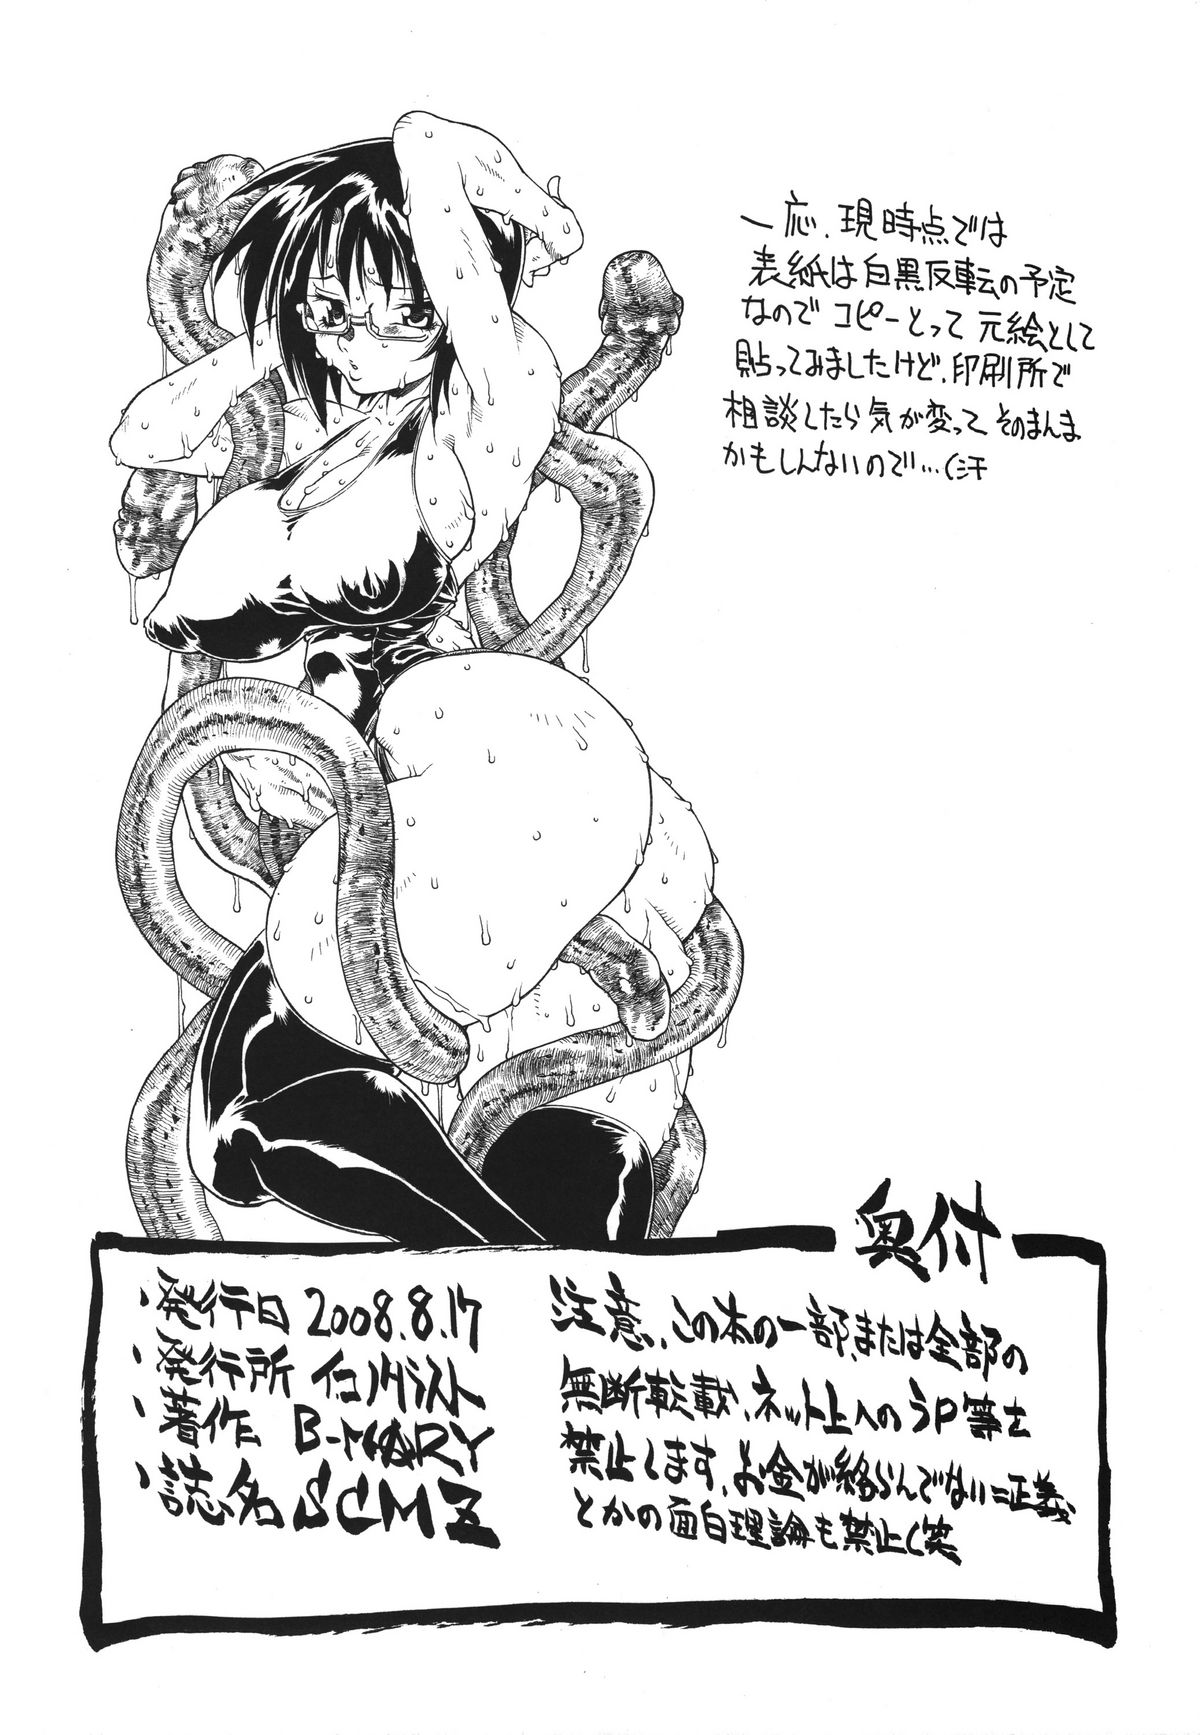 一応、現時点では
表紙は白黒反転の予定
なので コピーとって 元絵として
貼ってみましたけど、印刷所で
相談したら気が変って そのまんま
かもしんないので…(汗
奥付
・発行日 2008.8.17
・発行所
・著作 B-MARY
・誌名 SCMZ
注意、この本の一部、または全部の
無断転載、ネット上への うP 等を
禁止します、お金が絡らんでない=正義
とかの面白理論も禁止(笑